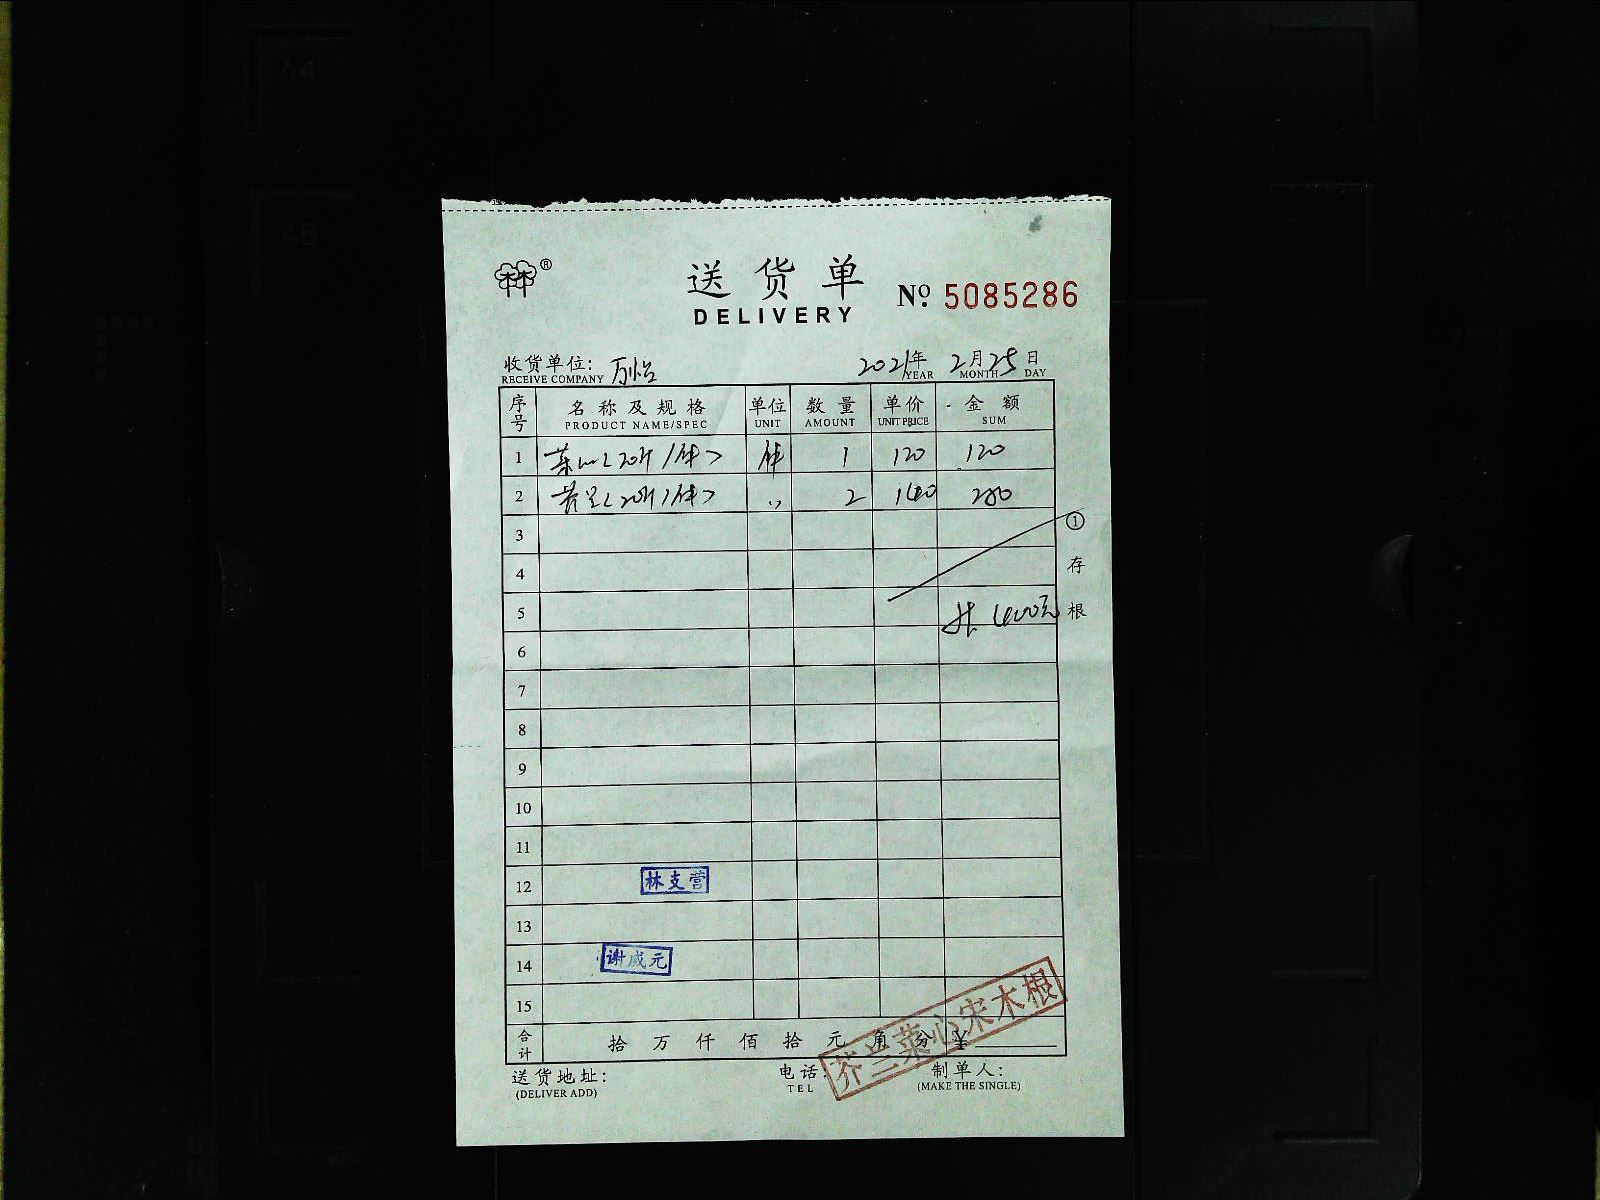 A4
A5
送货单
DELIVERY
№ 5085286
收货单位: 万怡 2021年 2月25日
RECEIVE COMPANY YEAR MONTH DAY
序号 名称及规格 单位 数量 单价 金额
PRODUCT NAME/SPEC UNIT AMOUNT UNIT PRICE SUM
1 菜心<20斤/件> 件 1 120 120
2 芥兰<20斤/件> 〃 2 140 280
3
① 存根
4
5 共400元
6
7
8
9
10
11
12 林支营
13
14 谢成元
15
芥兰菜心宋木根
合计 拾 万 仟 佰 拾 元 角 分 ¥
送货地址: 电话: 制单人:
(DELIVER ADD) TEL (MAKE THE SINGLE)